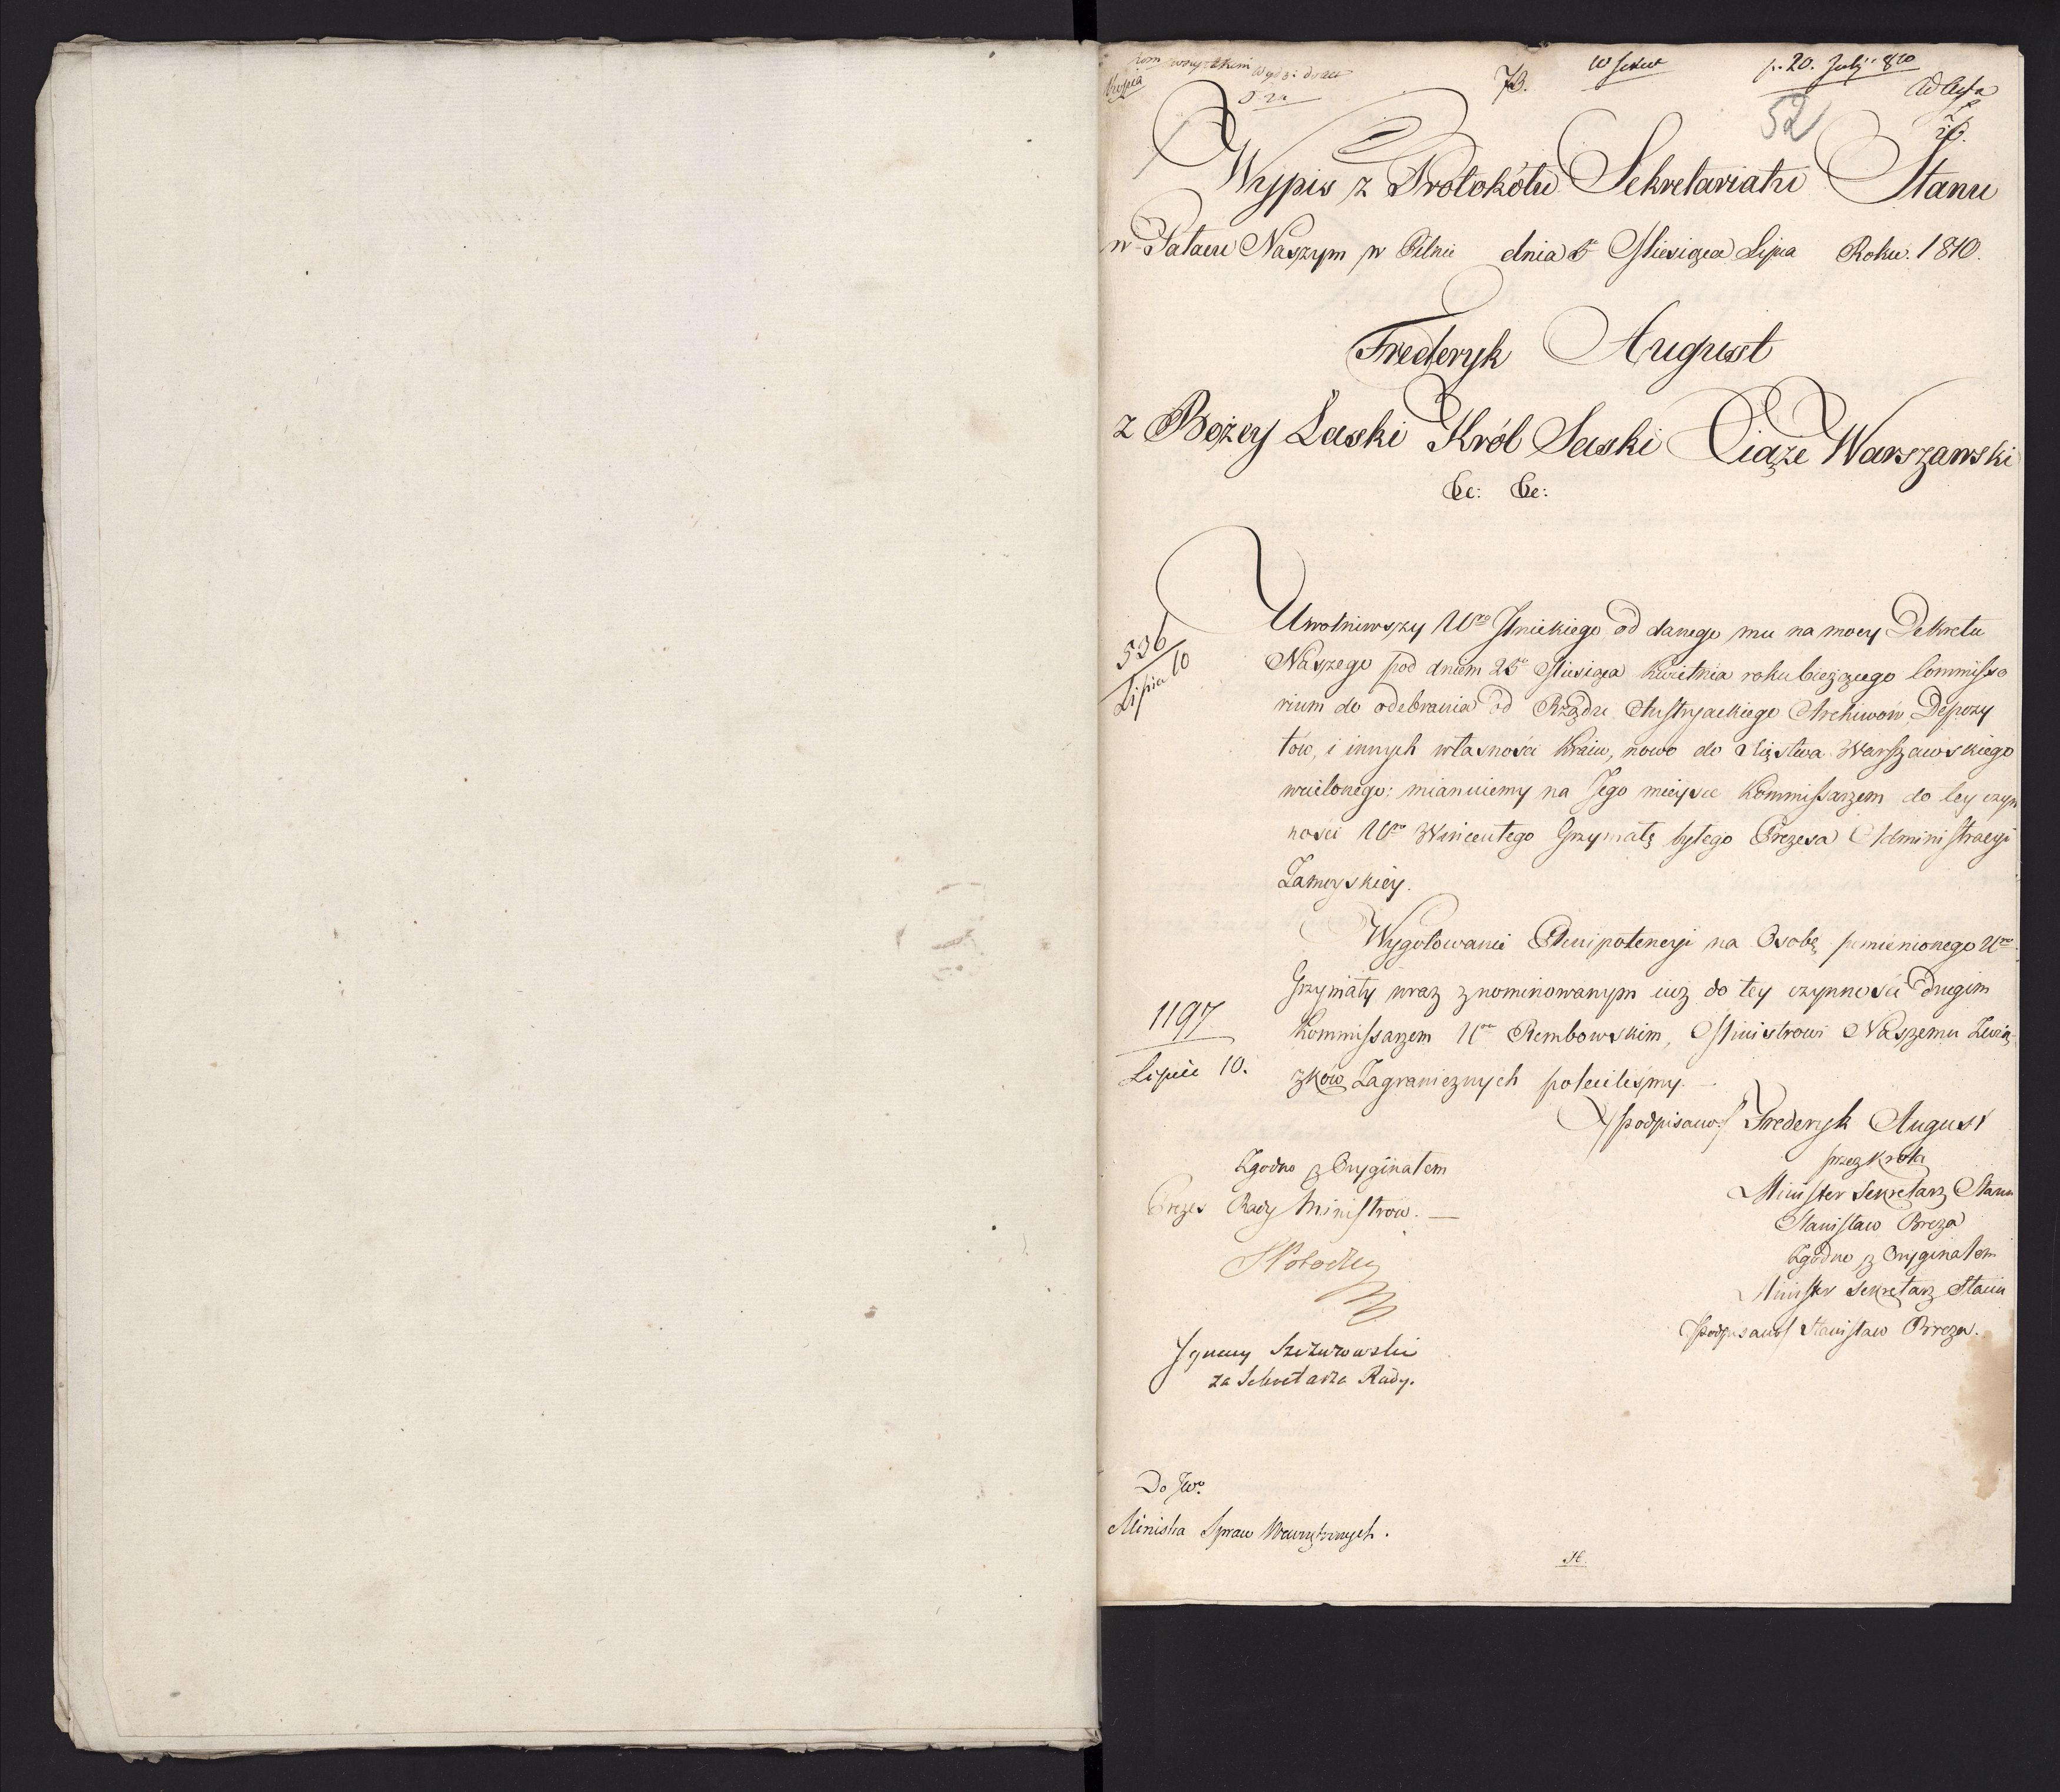 Kopia
78.
p. 20. Julij 810
Ad Acta
52
Wypis z Protokółu Sekretariatu Stanu
w Pałacu Naszym w Pilnic dnia 5º Miesiąca Lipca Roku 1810.
Frederyk August
z Bożey Łaski Król Saski Xiąże Warszawski
&c: &c:
536
Lipca 10
Uwolniwszy Urº Jnickiego od danego mu na mocy Dekretu
Naszego pod dniem 25º Miesiąca Kwietnia roku bieżącego Commisso
rium do odebrania od Rządu Austryackiego Archiwów, Depozy
tów, i innych własności Kraiu, nowo do Xięstwa Warszawskiego
wcielonego: mianuiemy na Jego mieysce Kommissarzem do tey czyn
ności Urº Wincentego Grzymałę byłego Prezesa Administracyi
Zamoyskiéy.
Wygotowanie Plenipotencyi na Osobę pomienionego Urº
Grzymały wraz z nominowanym iuż do tey czynności drugim
1197
Kommissarzem Urº Rembowskim, Ministrowi Naszemu Zwią
Lipiec 10.
zków Zagranicznych poleciliśmy.
/podpisano/ Frederyk August
przez Króla
Minister Sekretarz Stanu
Stanisław Breza
Zgodno z Oryginałem
Minister Sekretarz Stanu
/podpisano/ Stanisław Breza.
Zgodno z Oryginałem
Prezes Rady Ministrów.
S Potocki
Ignacy Szczurowski
za Sekretarza Rady.
Do JWº
Ministra Spraw Wewnętrznych.